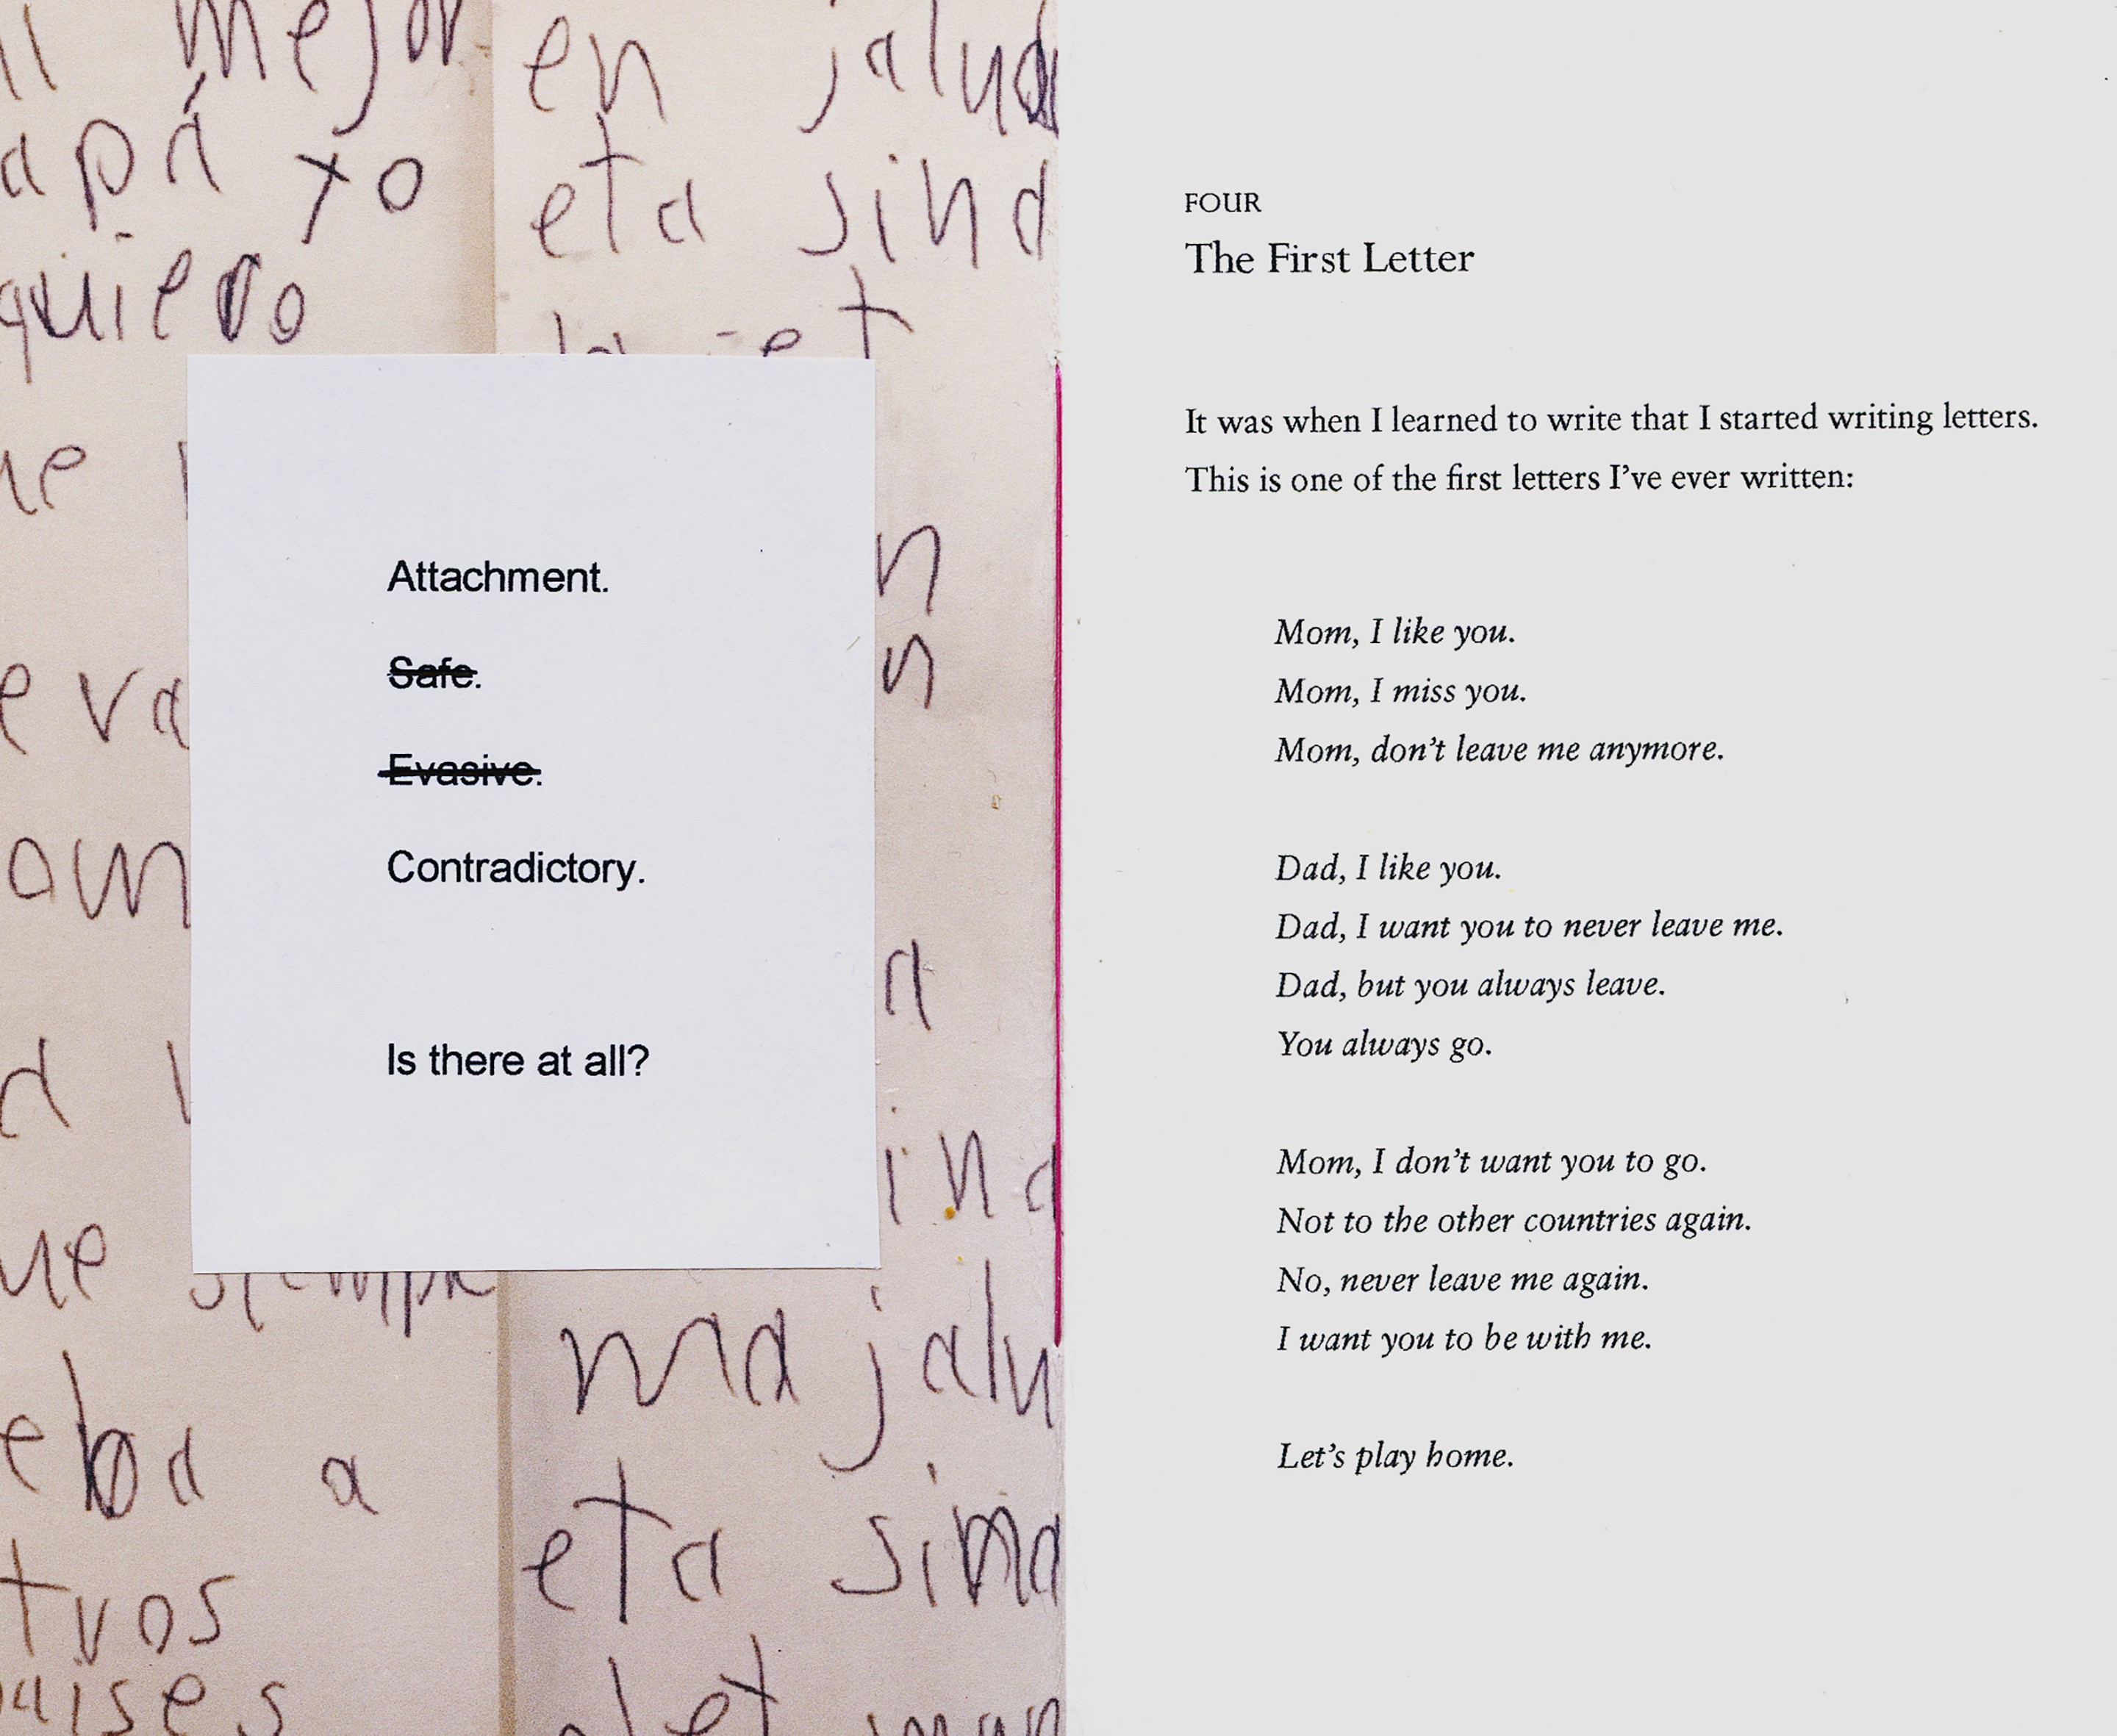 mejor
apá yo
quiero
a
tros
en jalua
eta sina
n
n
a
ma jalu
eta sina
Attachment.
Safe.
Evasive.
Contradictory.
Is there at all?
FOUR
The First Letter
It was when I learned to write that I started writing letters.
This is one of the first letters I’ve ever written:
Mom, I like you.
Mom, I miss you.
Mom, don’t leave me anymore.
Dad, I like you.
Dad, I want you to never leave me.
Dad, but you always leave.
You always go.
Mom, I don’t want you to go.
Not to the other countries again.
No, never leave me again.
I want you to be with me.
Let’s play home.